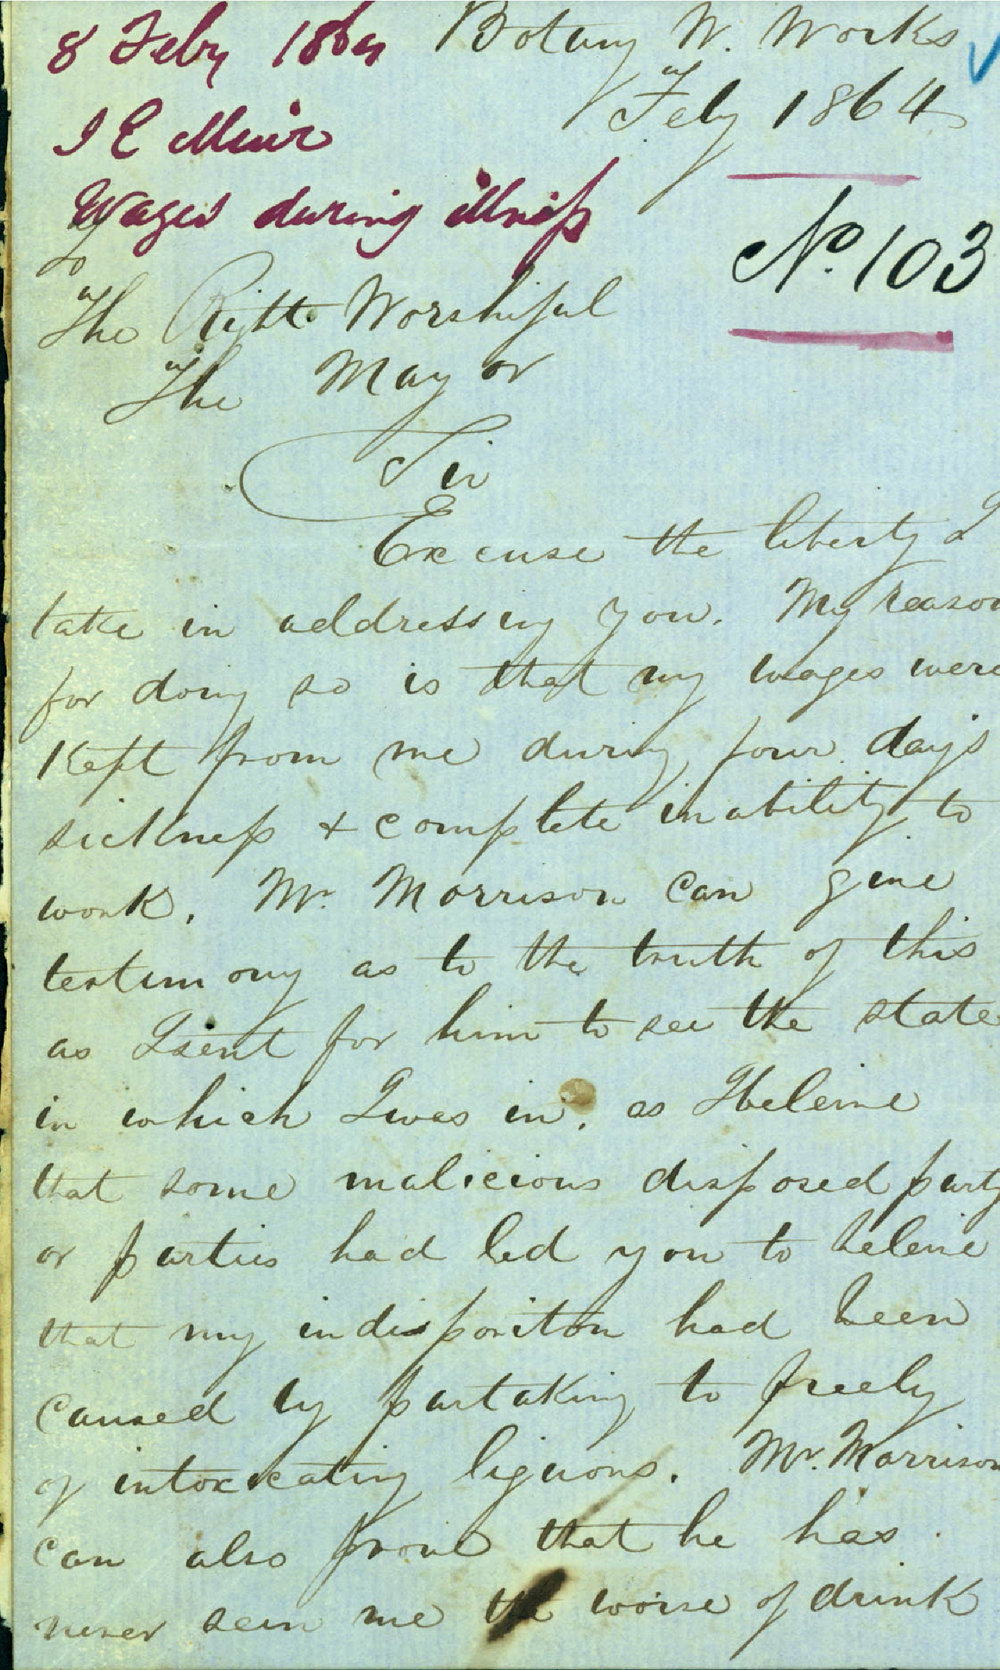 8 Feby 1864
Botany W. Works
Feby 1864
J E Muir
Wages during illness
No. 103
To
The Right Worshipful
The Mayor
Sir
Excuse the liberty I
take in addressing you. My reason
for doing so is that my wages were
kept from me during four days
sickness & complete inability to
work. Mr. Morrison can give
testimony as to the truth of this
as I sent for him to see the state
in which I was in, as I beleive
that some malicious disposed party
or parties had led you to beleive
that my indispositon had been
caused by partaking to freely
of intoxicating liquors. Mr. Morrison
can also prove that he has
never seen me the worse of drink